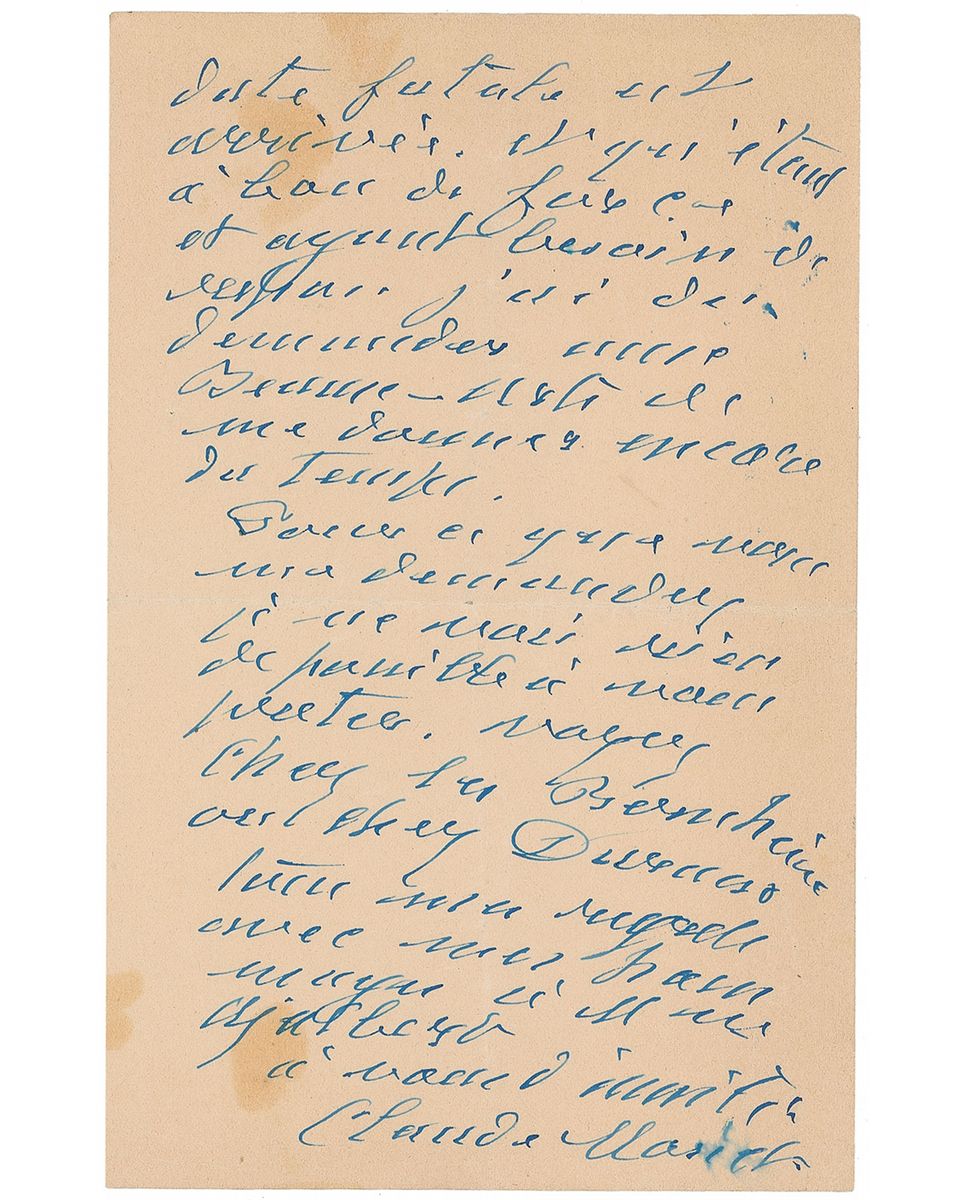 date fatale est
arrivée. et qu'étant
à bout de forces
et ayant besoin de
repos. j'ai dû
demander une
me donner encore
du temps.
Pour ce que vous
me demandez
je ne vois rien
de possible à vous
prêter. voyez
chez les Bernheim
ou chez Durand
tous mes regrets
avec mes hom
mages à Mme
Ajalbert
à vous d'amitié
Claude Monet